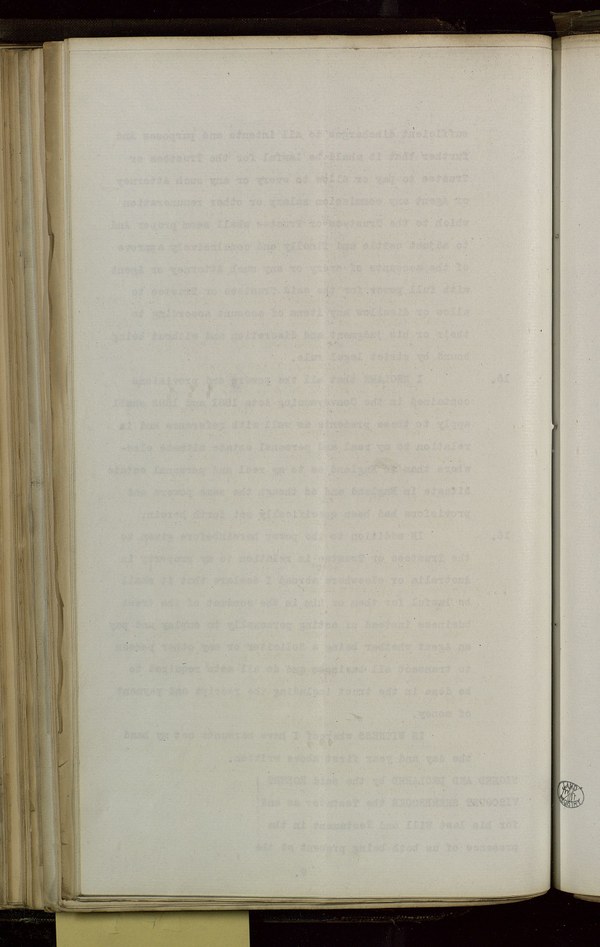 sufficient discharges to all intents and purposes and
further that it shall be lawful for the Trustees or
Trustee to pay or allow to every or any such attorney
or agent any commission salary or other remuneration
which to the Trustees or Trustee shall seem proper and
to adjust settle and finally and conclusively approve
of the accounts of every or any such Attorney or Agent
with full power for the said Trustees or Trustee to
allow or disallow any items of account according to
their or his judgment and discretion and without being
bound by strict legal rule.
I DECLARE that all the powers and provisions
contained in the Conveyancing Acts 1881 and 1882 shall
apply to these presents as well with reference and in
relation to my real and personal estate else-
where than in England as to my real and personal estate
situate in England and as though the same powers and
provisions had been specifically set forth herein.
16. IN addition to the power hereinbefore given to
the Trustees or Trustee in relation to my property in
Australia or elsewhere abroad I declare that it shall
be lawful for them or him in the conduct of the trust
business instead of acting personally to employ and pay
an agent whether being a Solicitor or any other person
to transact all business and do all acts required to
be done in the trust including the receipt and payment
of money.
IN WITNESS whereof I have hereunto set my hand
the day and year first above written.
SIGNED AND DECLARED by the said
VISCOUNT the Testator as and
for his last Will and Testament in the
presence of us both being present at the